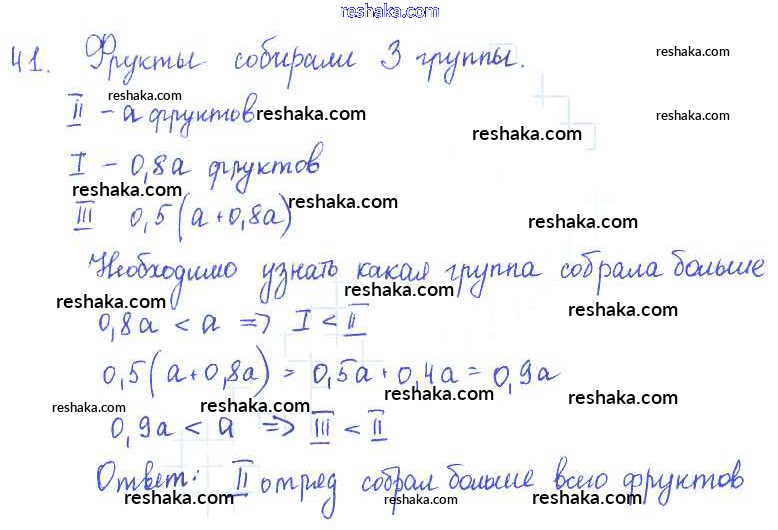 reshaka.com
41. Фрукты собирали 3 группы. reshaka.com
reshaka.com
II - а фруктов reshaka.com reshaka.com
I - 0,8а фруктов
reshaka.com reshaka.com
III 0,5(а+0,8а) reshaka.com
Необходимо узнать какая группа собрала больше
reshaka.com reshaka.com reshaka.com
0,8а < а => I < II
0,5(а+0,8а) = 0,5а+0,4а = 0,9а
reshaka.com reshaka.com reshaka.com reshaka.com
0,9а < а => III < II
Ответ: II отряд собрал больше всего фруктов
reshaka.com reshaka.com reshaka.com reshaka.com